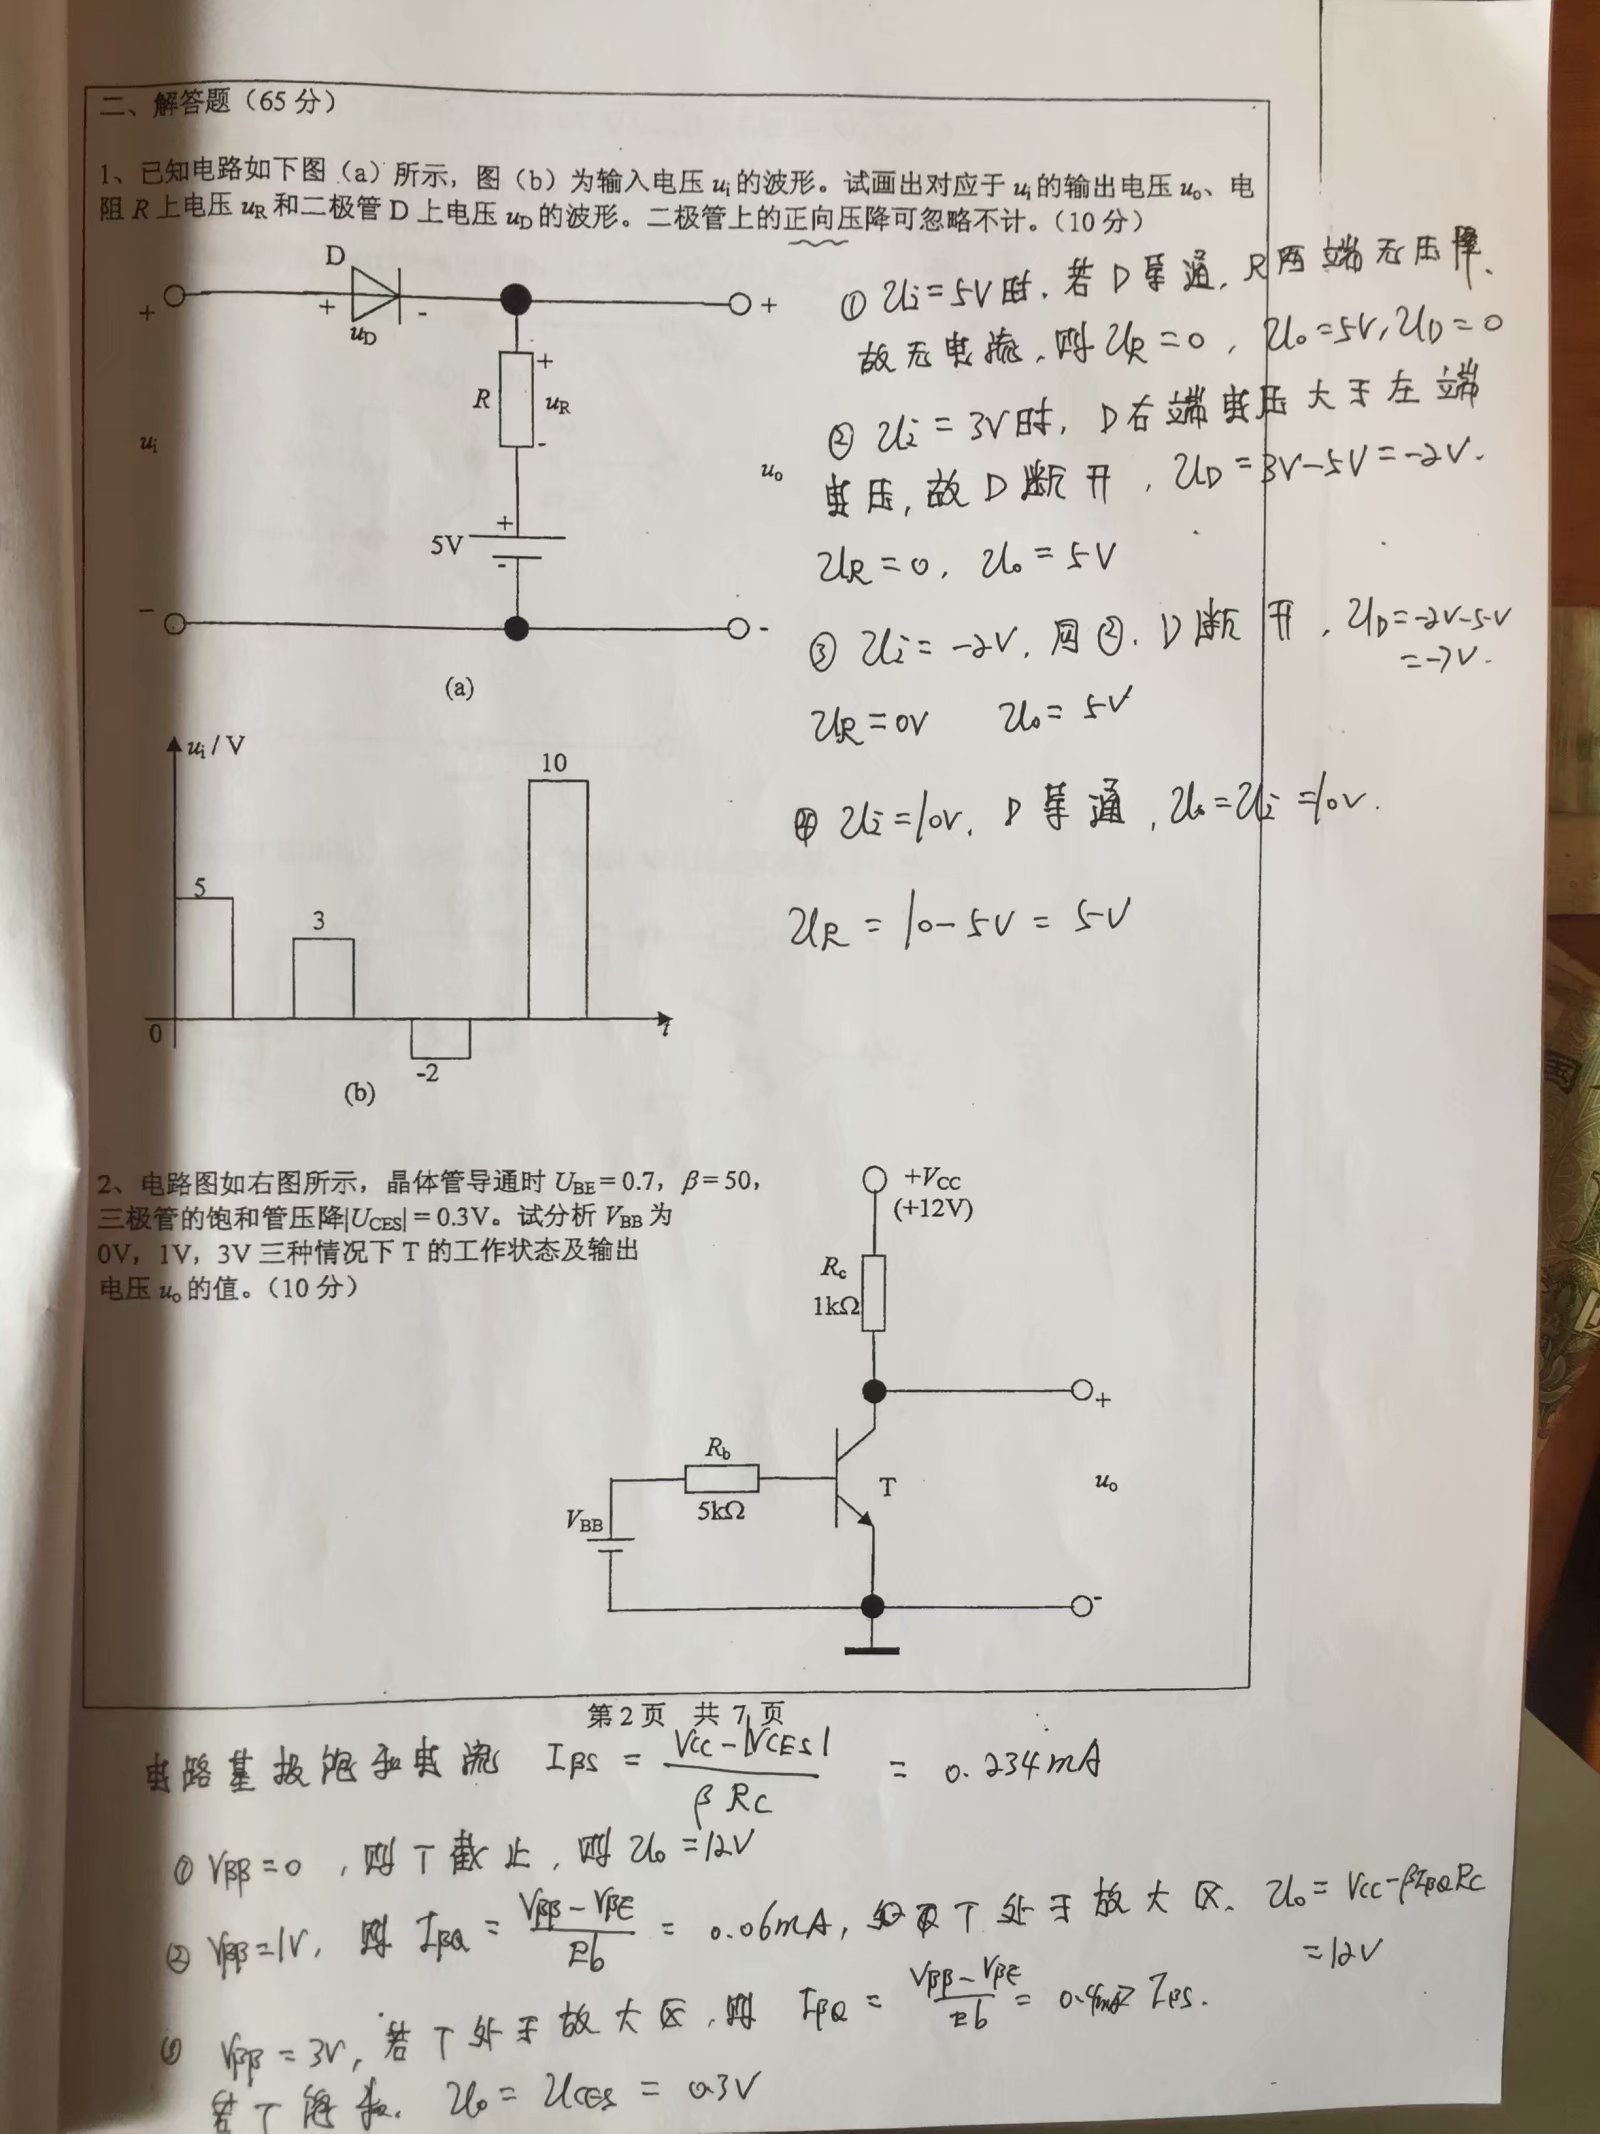 二、解答题（65 分）
1、已知电路如下图（a）所示，图（b）为输入电压 uᵢ 的波形。试画出对应于 uᵢ 的输出电压 uₒ、电
阻 R 上电压 uR 和二极管 D 上电压 uD 的波形。二极管上的正向压降可忽略不计。（10 分）
D
+ + uD - +
R + uR -
uᵢ
uₒ
5V + -
- -
(a)
① Uᵢ=5V时，若D导通，R两端无压降、
故无电流，则UR=0，Uₒ=5V，UD=0
② Uᵢ=3V时，D右端电压大于左端
电压，故D断开，UD=3V-5V=-2V.
UR=0，Uₒ=5V
③ Uᵢ=-2V，同②，D断开，UD=-2V-5V
=-7V.
UR=0V Uₒ=5V
④ Uᵢ=10V，D导通，Uₒ=Uᵢ=10V.
UR=10-5V=5V
uᵢ / V
10
5
3
0
t
-2
(b)
2、电路图如右图所示，晶体管导通时 UBE＝0.7，β＝50，
三极管的饱和管压降|UCES|＝0.3V。试分析 VBB 为
0V，1V，3V 三种情况下 T 的工作状态及输出
电压 uₒ 的值。（10 分）
+VCC
(+12V)
Rc
1kΩ
+
Rb
5kΩ
T
uₒ
VBB
-
第 2 页 共 7 页
电路基极饱和电流 IBS = (VCC-|VCES|)/(βRC) = 0.234mA
① VBB=0，则T截止，则Uₒ=12V
② VBB=1V，则IBQ = (VBB-VBE)/Rb = 0.06mA，T处于放大区. Uₒ=VCC-βIBQRC
=12V
VBB=3V，若T处于放大区，则 IBQ = (VBB-VBE)/Rb = IBS.
T饱和. Uₒ=UCES=0.3V